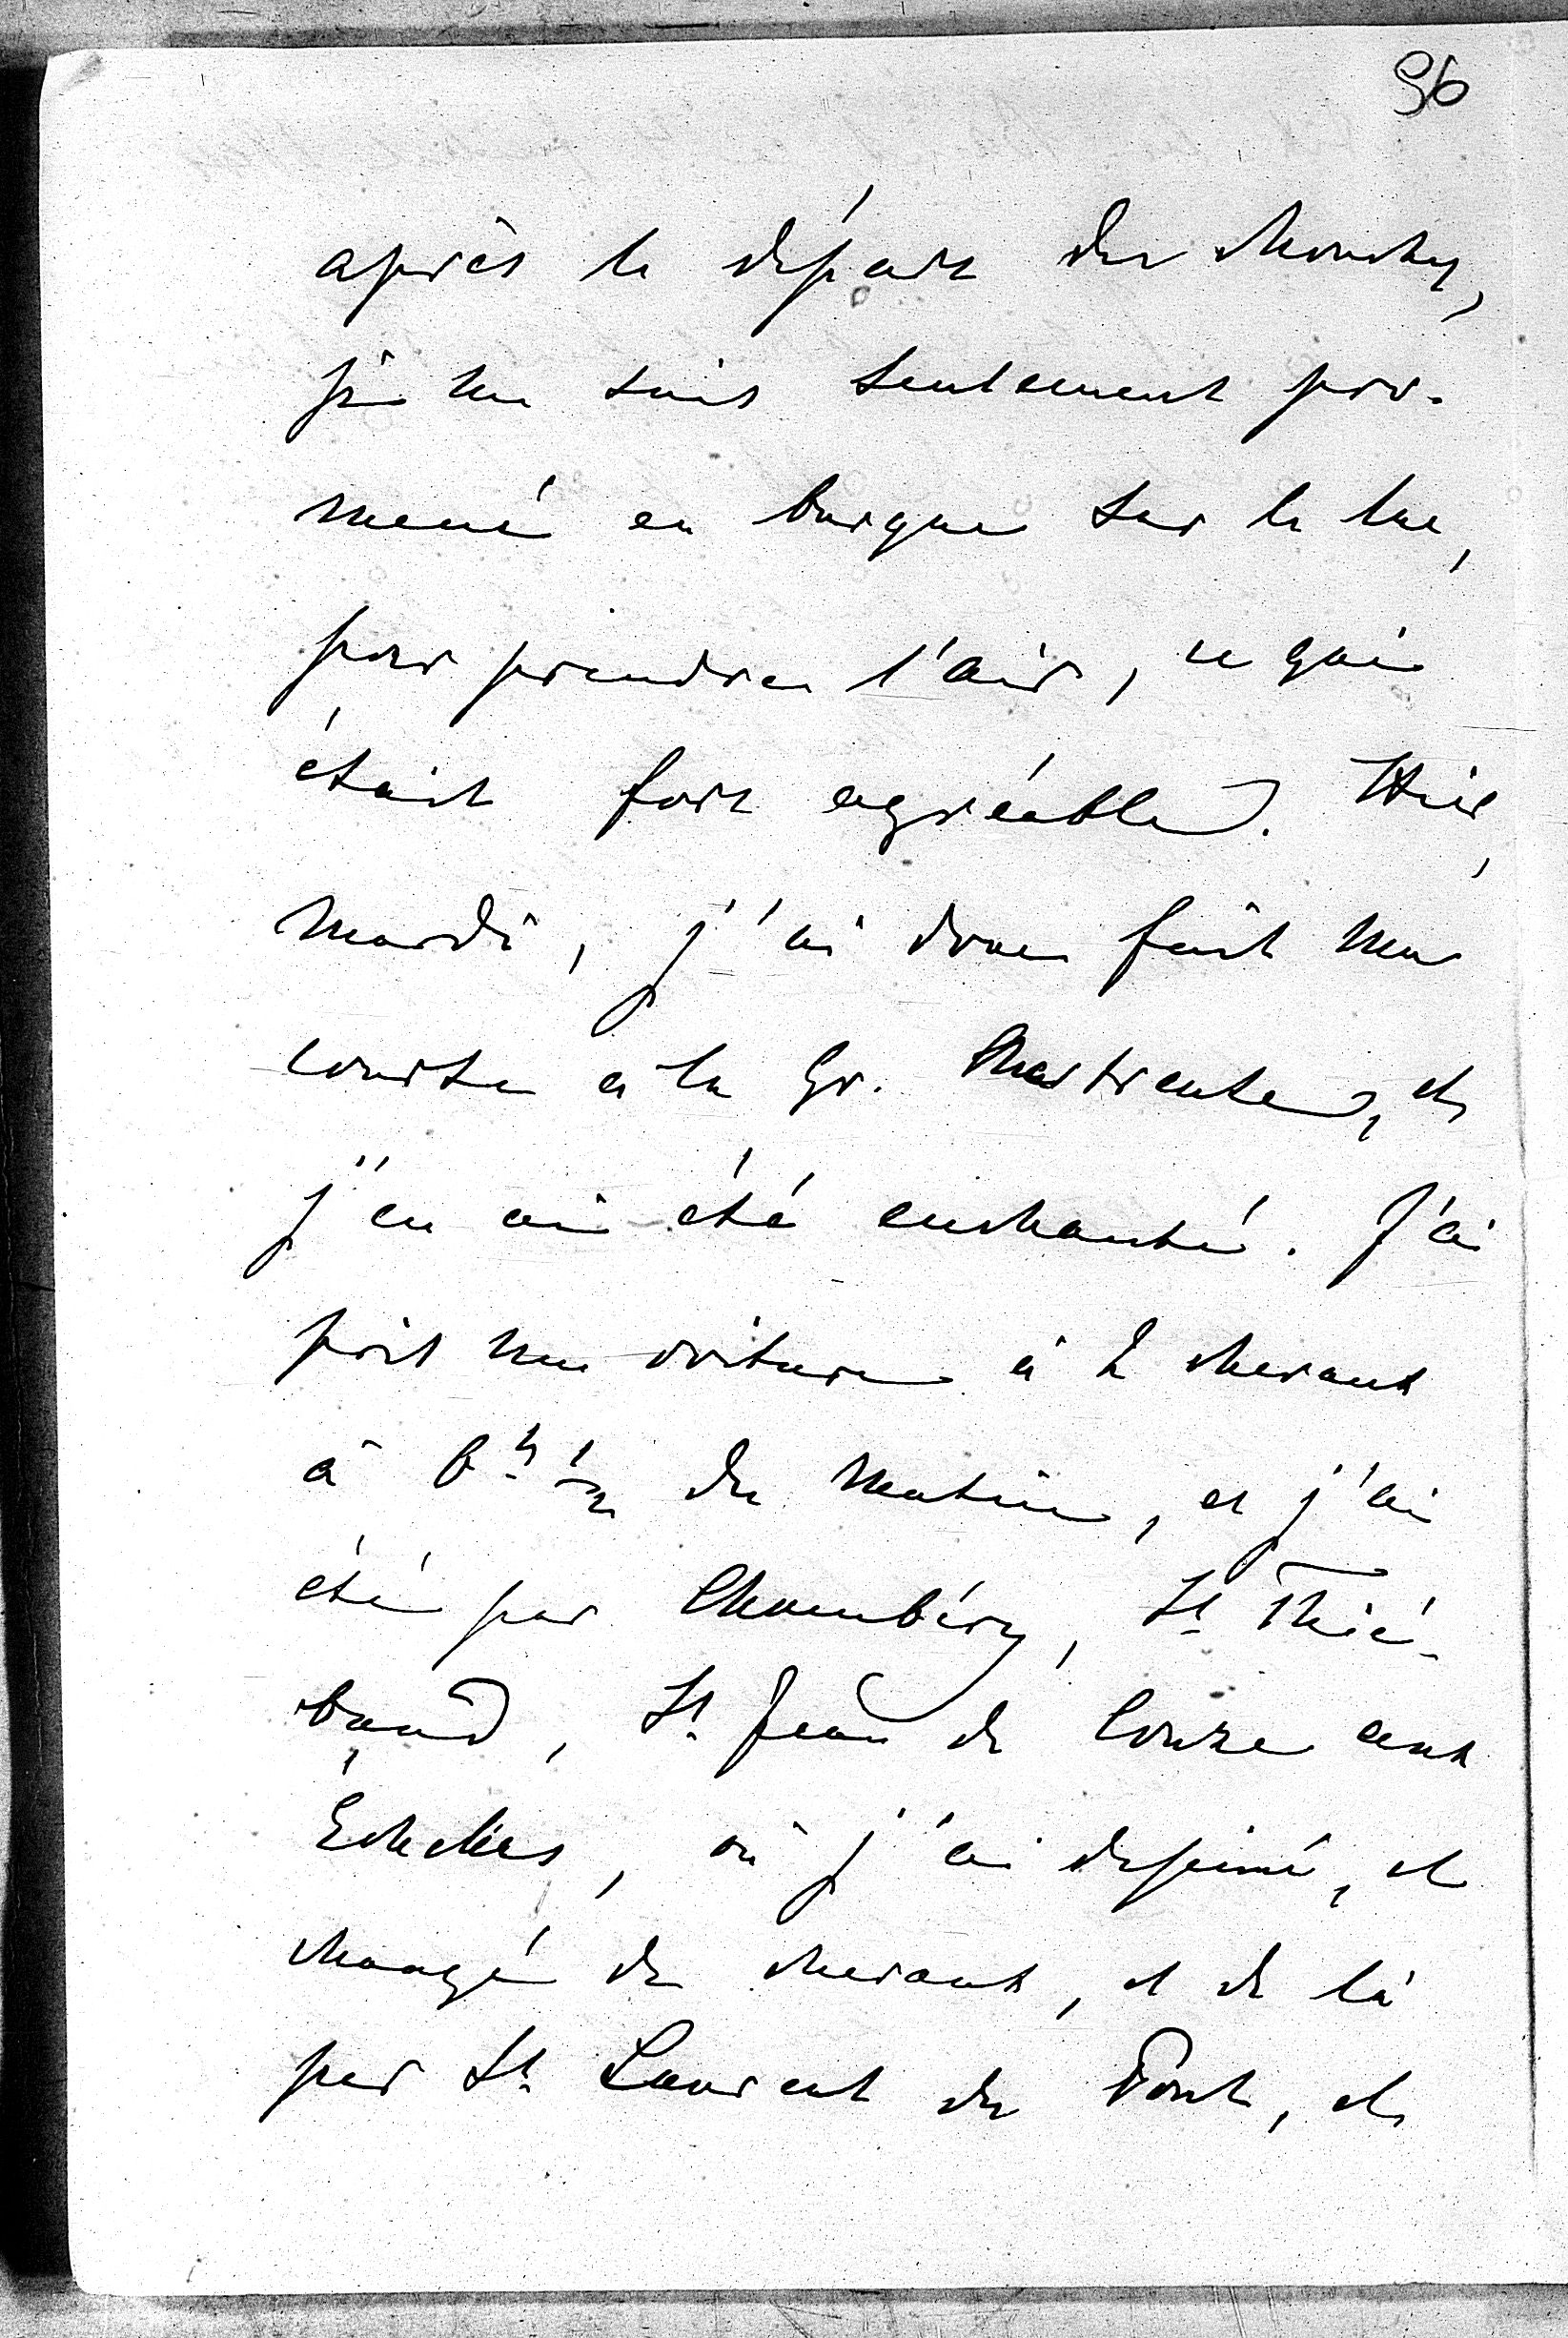 96
après le départ des Mouchy,
je me suis seulement pro-
mené en barque sur le lac,
pour prendre l'air, ce qui
était fort agréable. Hier,
mardi, j'ai donc fait ma
course à la Gr. Chartreuse, et
j'en ai été enchanté. J'ai
pris une voiture à 2 chevaux
à 6h 1/2 du matin, et j'ai
été par Chambéry, St Thié-
baud, St Jean de Couze aux
Échelles, où j'ai dejeuné, et
changé de chevaux, et de là
par St Laurent du Pont, et